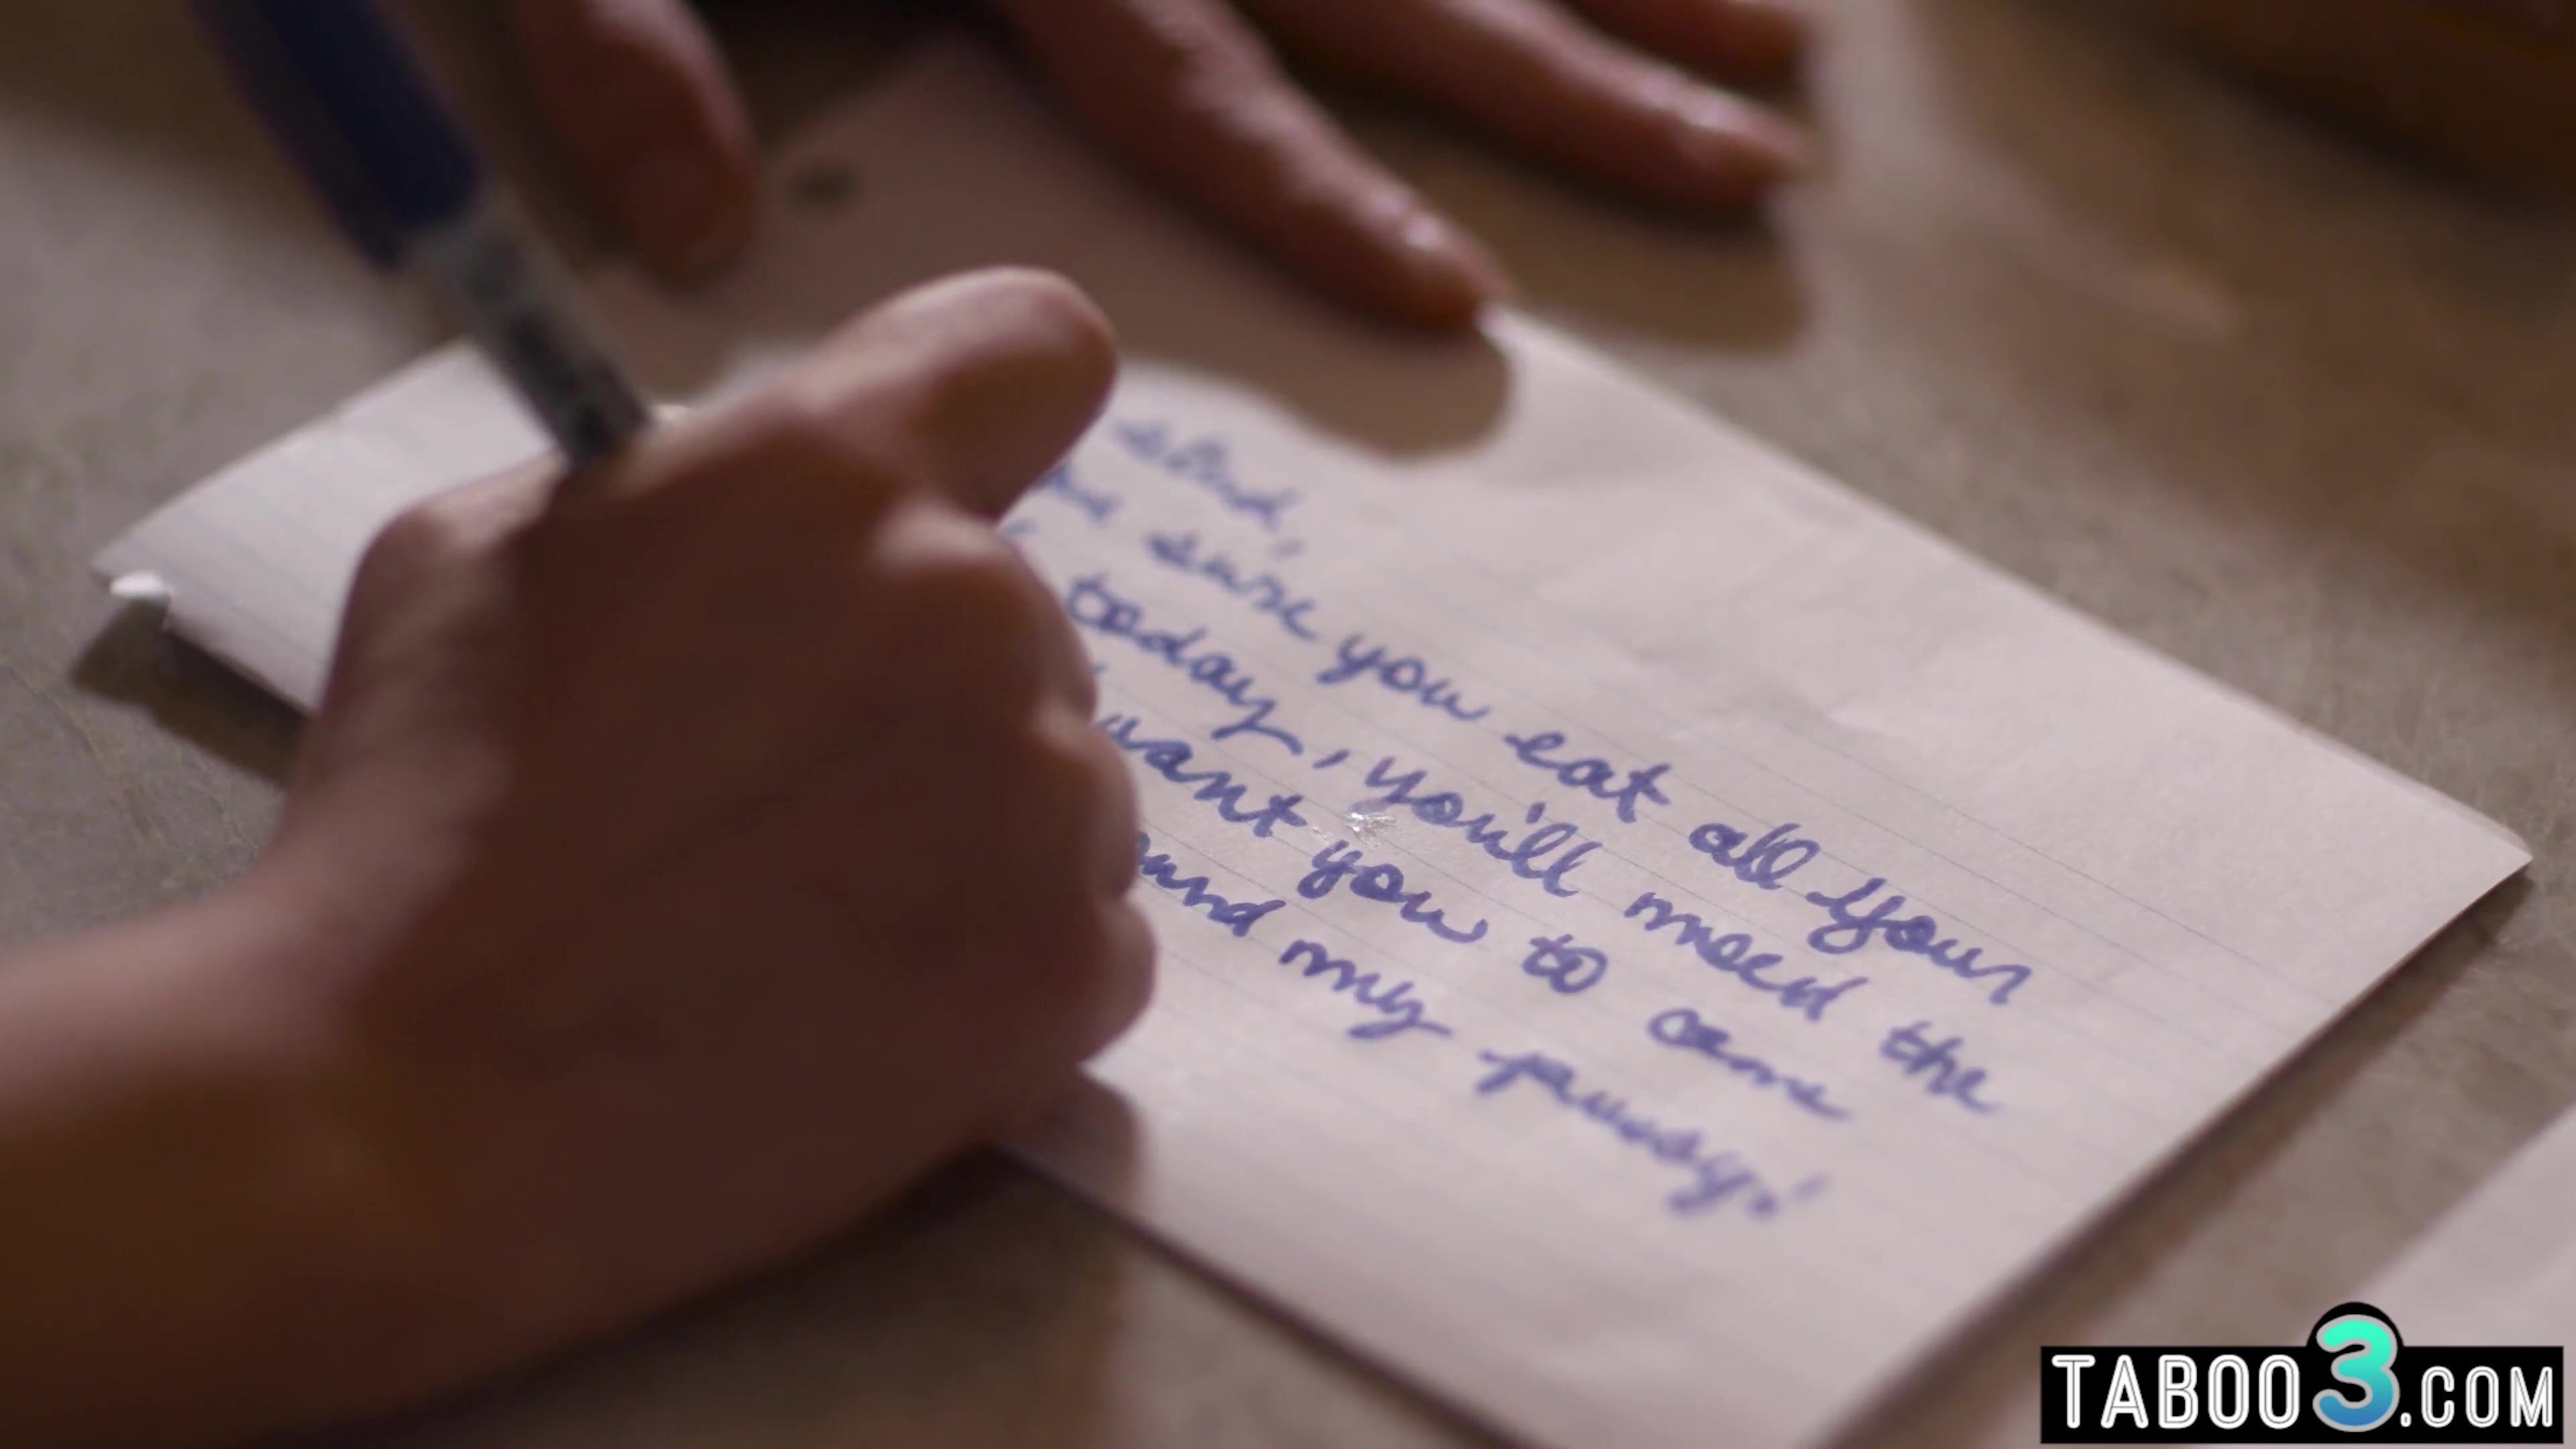 sure you eat all your
today, you'll need the
want you to come
my pussy!
TABOO3.COM